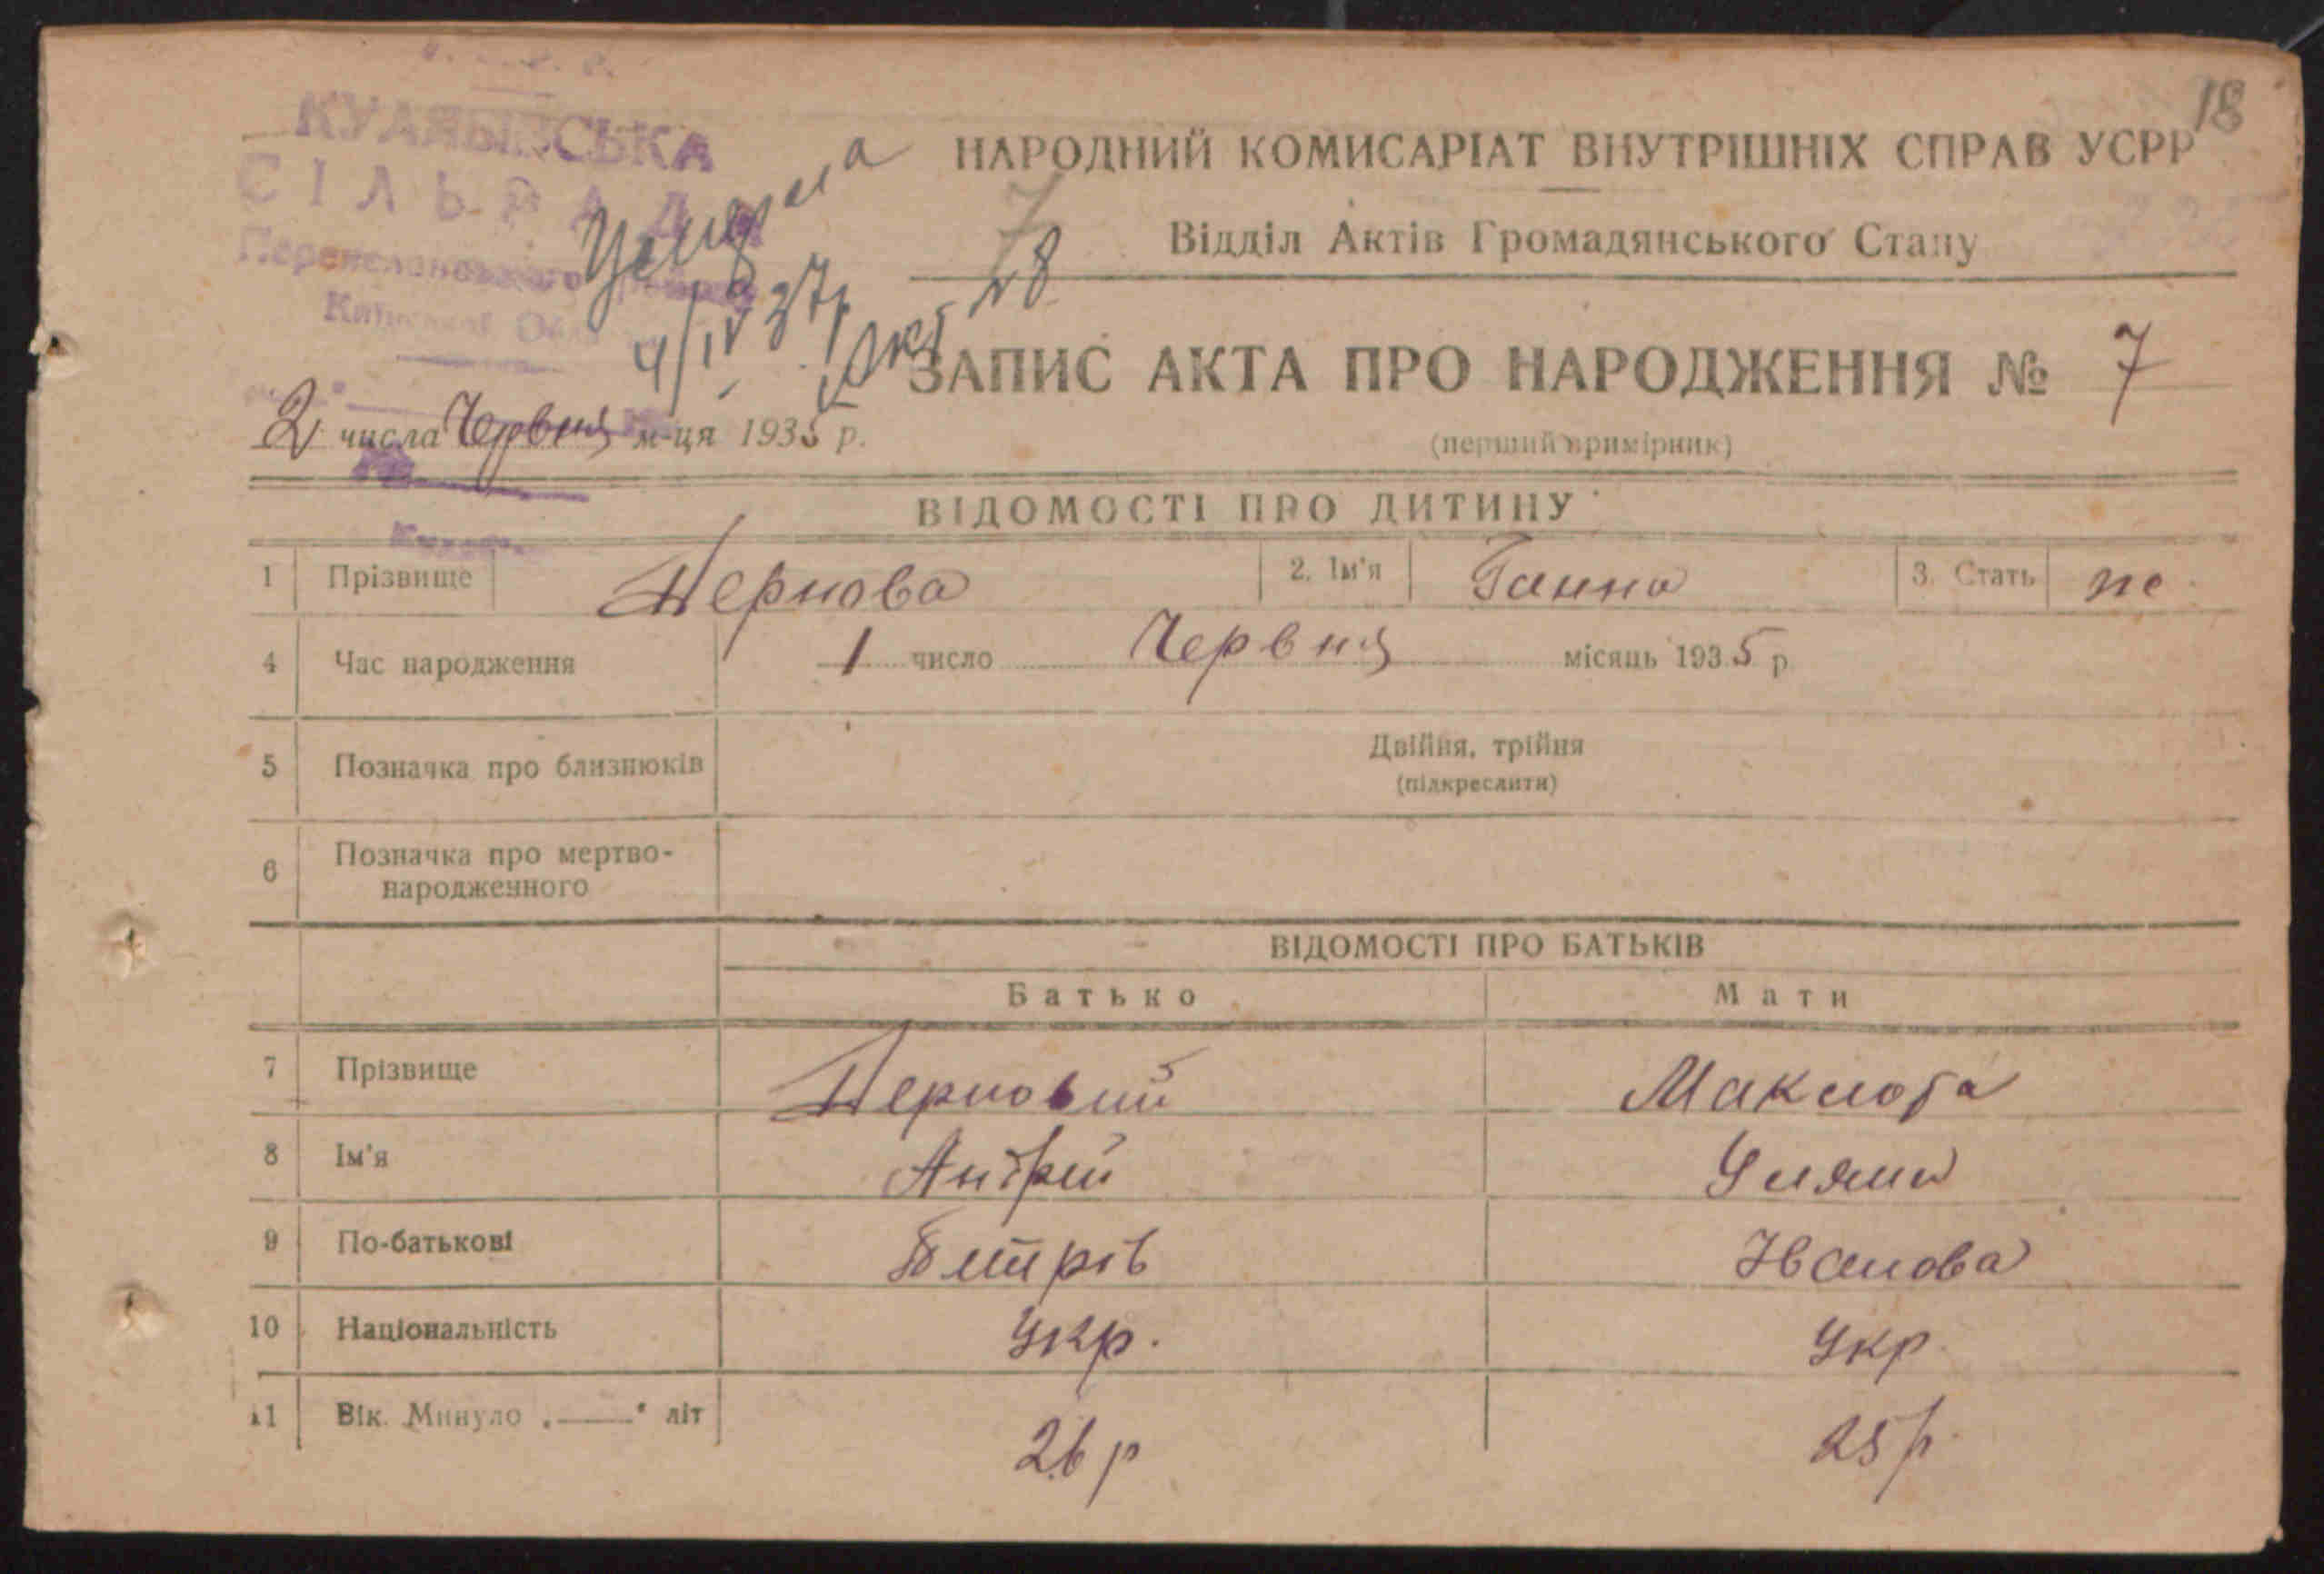 18
СІЛЬРАДА
НАРОДНИЙ КОМИСАРІАТ ВНУТРІШНІХ СПРАВ УСРР
Відділ Актів Громадянського Стану
7
28
4/IV 37р
Акт
ЗАПИС АКТА ПРО НАРОДЖЕННЯ № 7
(перший примірник)
2 числа Червня м-ця 1935 р.
ВІДОМОСТІ ПРО ДИТИНУ
1 Прізвище 2. Ім'я Ганна 3. Стать
4 Час народження 1 число Червня місяць 1935 р
5 Позначка про близнюків Двійня, трійня
(підкреслити)
6 Позначка про мертво-
народженного
ВІДОМОСТІ ПРО БАТЬКІВ
Батько Мати
7 Прізвище
8 Ім'я Андрій Уляна
9 По-батькові Іванова
10 Національність Укр. Укр.
11 Вік. Минуло „——“ літ 26 р 25 р.